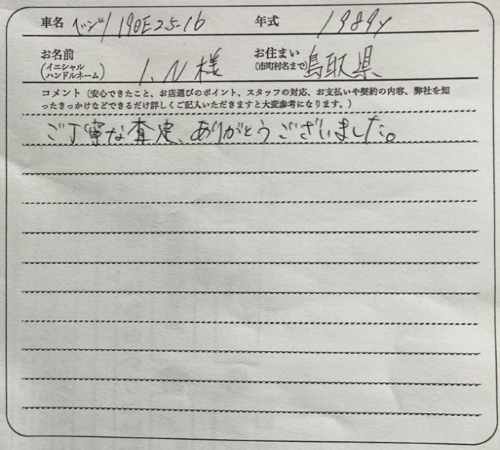 車名 ベンツ190E2.5-16 年式 1989y
お名前 (イニシャル ハンドルネーム) I.N 様 お住まい (市町村名まで) 鳥取県
コメント(安心できたこと、お店選びのポイント、スタッフの対応、お支払いや契約の内容、弊社を知
ったきっかけなどできるだけ詳しくご記入いただきますと大変参考になります。)
ご丁寧な査定、ありがとうございました。